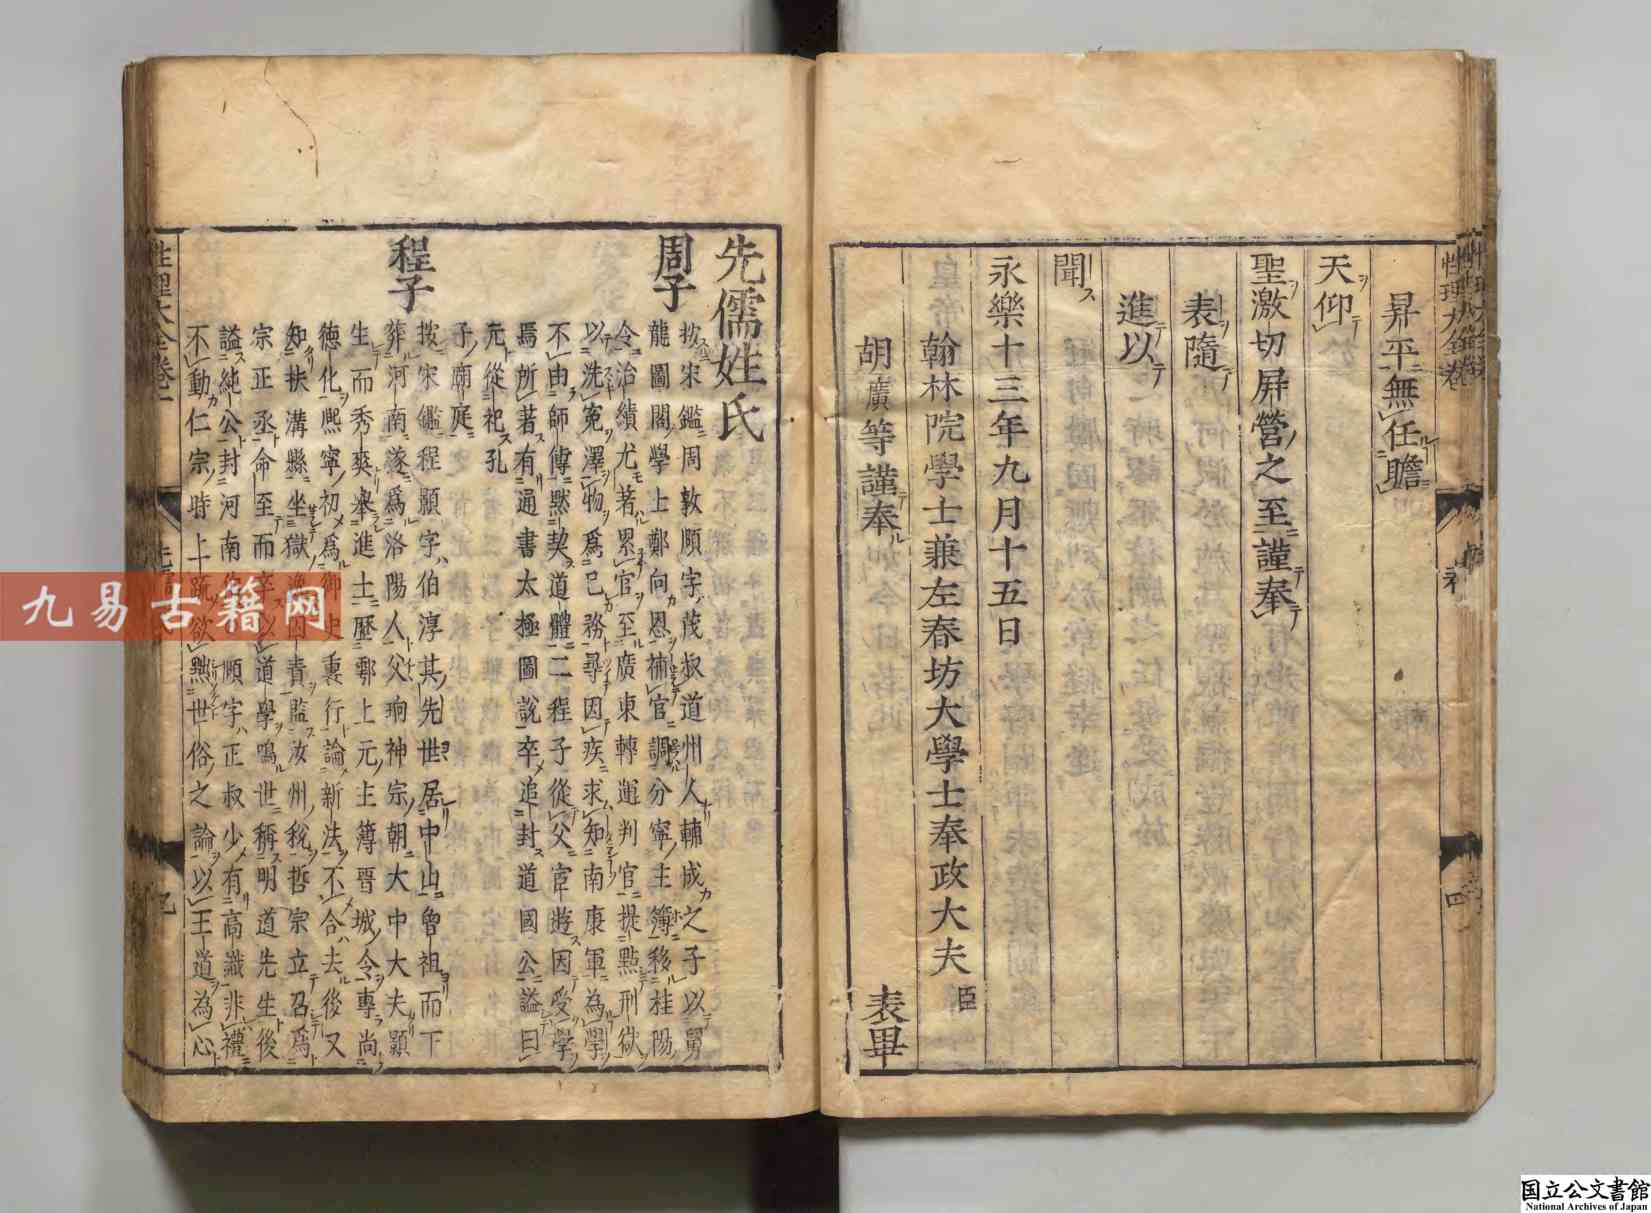 昇平無任瞻
天仰
聖激切屏營之至謹奉
表隨
進以
聞
永樂十三年九月十五日
翰林院學士兼左春坊大學士奉政大夫臣
胡廣等謹奉
表畢
先儒姓氏
周子
按宋鑑周敦頤字茂叔道州人輔成之子以舅
龍圖閣學士鄭向恩補官調分寧主簿移桂陽
令治績尤著累官至廣東轉運判官提點刑獄
以洗冤澤物為己務尋因疾求知南康軍為學
不由師傳默契道體二程子從父宦遊因受學
焉所著有通書太極圖說卒追封道國公謚曰
元從祀孔
子廟庭
程子
按宋鑑程顥字伯淳其先世居中山曾祖而下
葬河南遂為洛陽人父珦神宗朝大中大夫顥
生而秀爽舉進士歷鄠上元主簿晉城令專尚
德化熙寧初為御史裏行論新法不合去後又
知扶溝縣坐獄逸囚責監汝州稅哲宗立召為
宗正丞命至而卒以道學鳴世稱明道先生後
謚純公封河南 頤字正叔少有高識非禮
不動仁宗時上疏欲黜世俗之論以王道為心
性理大全卷
四
九易古籍网
国立公文書館
National Archives of Japan